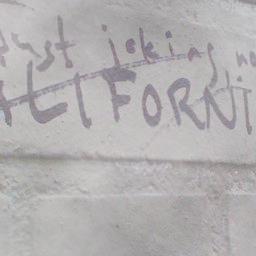 Just joking no
CALIFORNI